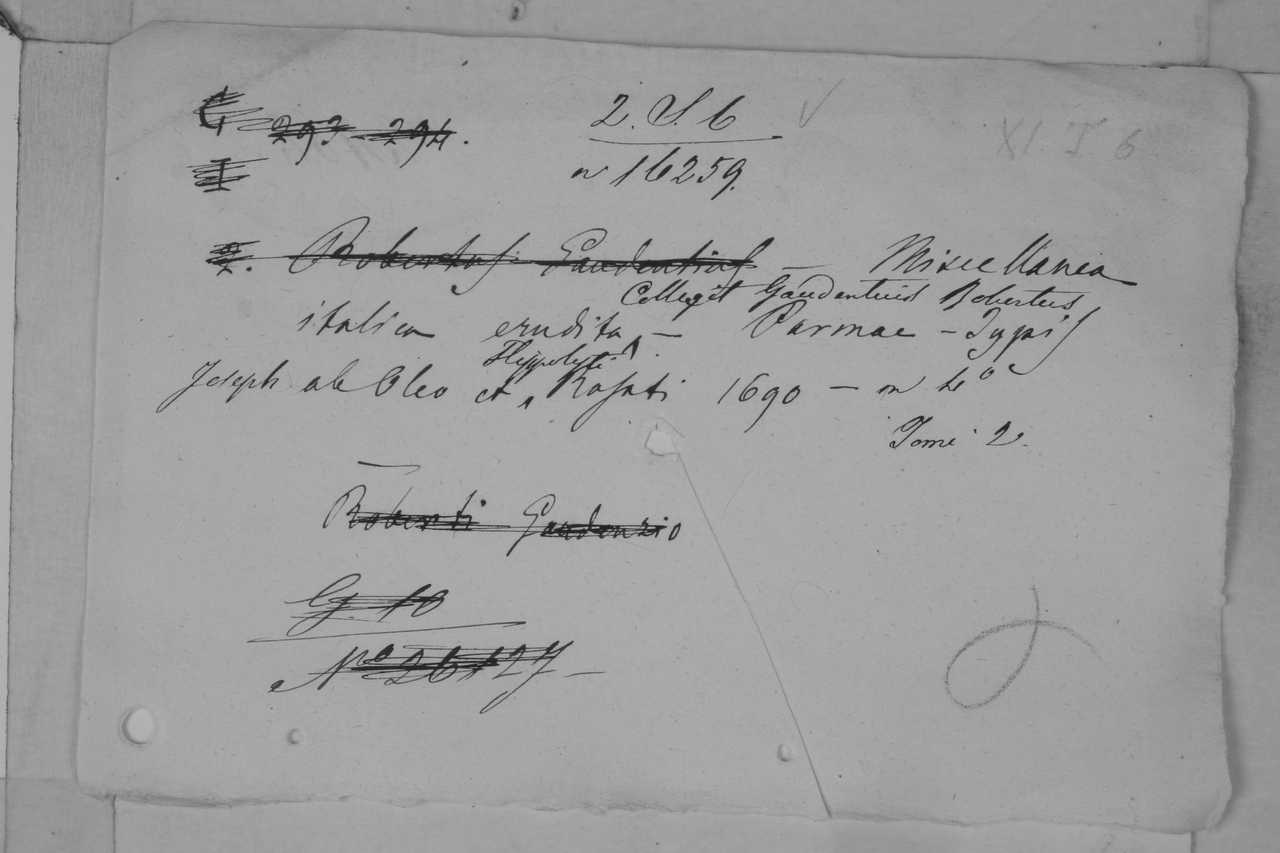 293-294.
2. S. 6
XI. I 6
n 16259.
2. Robertus Gaudentius — Miscellanea
Collegit Gaudentius Robertus
italica erudita — Parmae — Typis
Hippolyti
Joseph ab Oleo et Rosati 1690 — in 4º
Tomi 2.
Roberti Gaudenzio
G. 10
Nº 26127